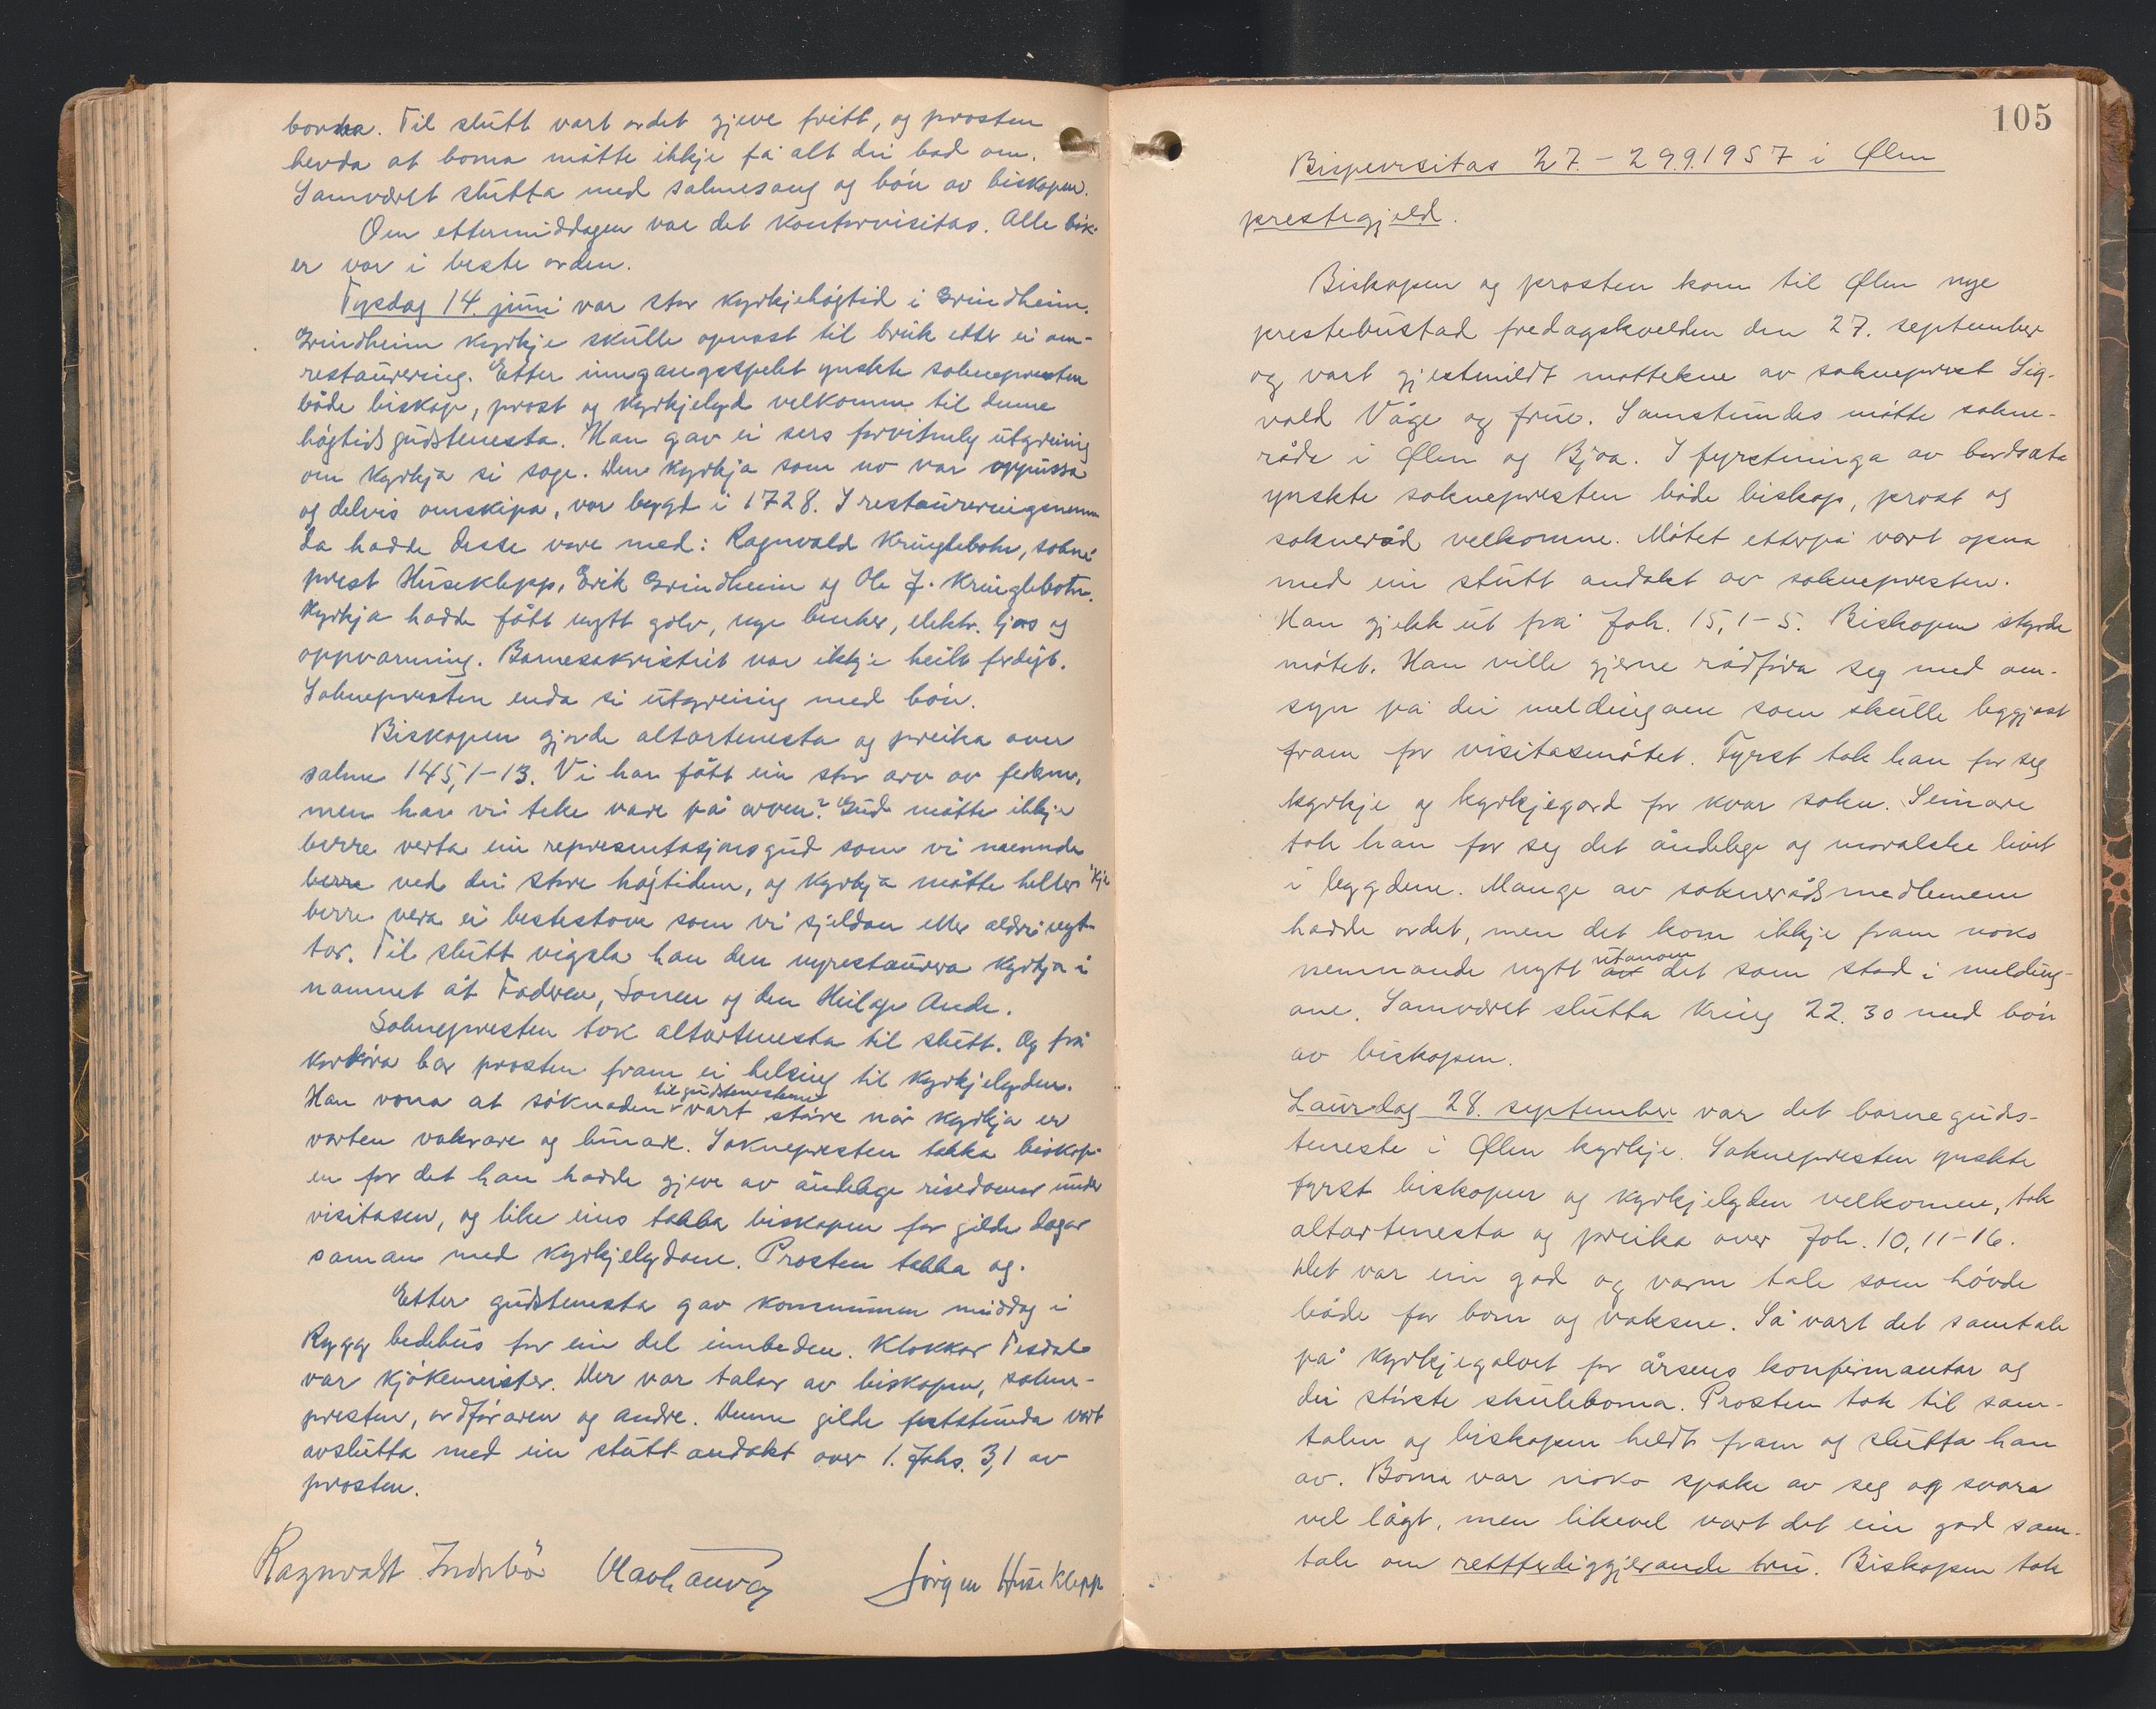 borna. Til slutt vart ordet gjeve fritt, og prosten
hevda at borna måtte ikkje få alt dei bad om.
Samværet slutta med salmesong og bön av biskopen.
Om ettermiddagen var det kontorvisitas. Alle bök-
er var i beste orden.
Tysdag 14. juni var stor kyrkjehögtid i Grindheim.
Grindheim kyrkje skulle opnast til bruk etter ei om-
restaurering. Etter inngangsspelet ynskte soknepresten
både biskop, prost og kyrkjelyd velkomne til denne
högtidsgudstenesta. Han gav ei sers forvitneleg utgreiing
om kyrkja si soge. Den kyrkja som no var oppussa
og delvis omskipa, var bygd i 1728. I restaureringsnemn
da hadde desse vore med: Ragnvald Kringlebotn, sokne
prest Huseklepp, Erik Grindheim og Ole J. Kringlebotn.
Kyrkja hadde fått nytt golv, nye benker, elektr. ljos og
oppvarming. Barnesakristiet var ikkje heilt ferdigt.
Soknepresten enda si utgreiing med bön.
Biskopen gjorde altartenesta og preika over
salme 145,1-13. Vi har fått ein stor arv av fedrane,
men har vi teke vare på arven? Gud måtte ikkje
berre verta ein representasjonsgud som vi nemnde
berre ved dei store högtidene, og kyrkja måtte heller ikkje
berre vera ei bestestove som vi sjeldan eller aldri nyt-
tar. Til slutt vigsla han den nyrestaurerte kyrkja i
namnet åt Faderen, Sonen og den Heilage Ande.
Soknepresten tok altartenesta til slutt. Og frå
kordöra bar prosten fram ei helsing til kyrkjelyden.
Han vona at söknaden til gudstenestene vart störe når kyrkja er
vorten vakrare og lunare. Soknepresten takka biskop-
en for det han hadde gjeve av åndelege rikdomar under
visitasen, og like eins takka biskopen for gilde dagar
saman med kyrkjelydane. Prosten takka og.
Etter gudstenesta gav kommunen middag i
Rygg bedehus for ein del innbedne. Klokkar Tesdal
var kjökemeister. Der var talar av biskopen, sokne-
presten, ordföraren og andre. Denne gilde feststunda vart
avslutta med ein stutt andakt over 1. Johs. 3,1 av
prosten.
Ragnvald Indrebö Jörgen Huseklepp
105
Bispevisitas 27.-29.9.1957 i Ølen
prestegjeld.
Biskopen og prosten kom til Ølen nye
prestebustad fredagskvelden den 27. september
og vart gjestmildt mottekne av sokneprest Sig-
vald Våge og frue. Samstundes mötte sokne-
råda i Ølen og Bjoa. I fyrstninga av bordsæta
ynskte soknepresten både biskop, prost og
sokneråd velkomne. Mötet etterpå vart opna
med ein stutt andakt av soknepresten.
Han gjekk ut frå Joh. 15,1-5. Biskopen styrde
mötet. Han ville gjerne rådföra seg med om-
syn på dei meldingane som skulle leggjast
fram for visitasmötet. Fyrst tok han for seg
kyrkje og kyrkjegard for kvar sokn. Seinare
tok han for seg det åndelege og moralske livet
i bygdene. Mange av sokneråds medlemene
hadde ordet, men det kom ikkje fram noko
nemnande nytt utanom det som stod i melding-
ane. Samværet slutta kring 22.30 med bön
av biskopen.
Laurdag 28. september var det barneguds-
teneste i Ølen kyrkje. Soknepresten ynskte
fyrst biskopen og kyrkjelyden velkomne, tok
altartenesta og preika over Joh. 10,11-16.
Det var ein god og varm tale som hövde
både for born og vaksne. Så vart det samtale
på kyrkjegolvet for årsens konfirmantar og
dei störste skuleborna. Prosten tok til sam-
talen og biskopen heldt fram og slutta han
av. Borna var noko spake av seg og svara
vel lågt, men likevel vart det ein god sam-
tale om rettferdiggjerande tru. Biskopen tok